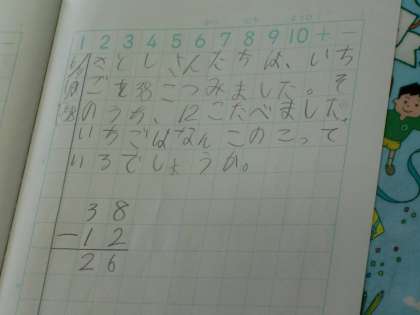 1 2 3 4 5 6 7 8 9 10 + -
さとしさんたちは、いち
ごを38こつみました。そ
のうち、12こたべました。
いちごはなんこのこって
いるでしょうか。
38
-12
26